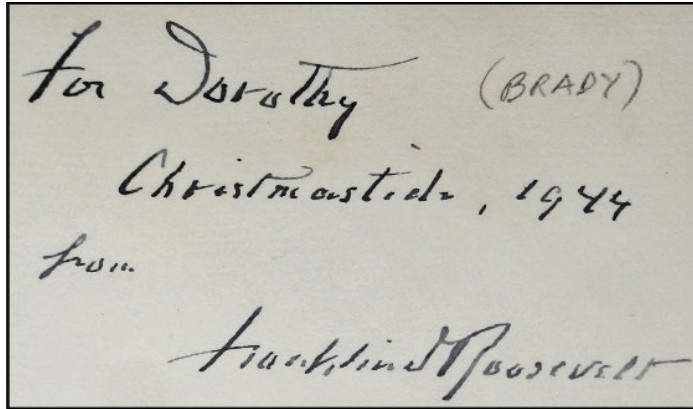 For Dorothy (BRADY)
Christmastide, 1944
from
Franklin D Roosevelt